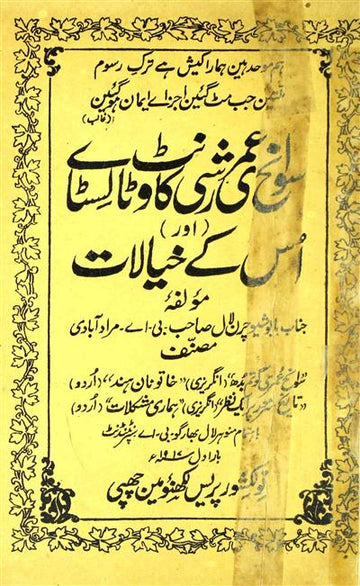 ہم موحد ہین ہمارا کیش ہے ترک رسوم
ملتین جب مٹ گئین اجزاے ایمان ہوگئین
(غالب)
سوانح عمری رشی کاونٹ ٹالسٹاے
(اور)
اُس کے خیالات
مؤلفۂ
جناب بابو شیو برن لال صاحب۔ بی۔ اے۔ مرادآبادی
مصنّف
سوانح عمری گوتم بدھ" (انگریزی) "خاتونان ہند" (اُردو)
"تاریخ پر ایک نظر" (انگریزی) "ہماری مشکلات" (اُردو)
باہتمام منوہر لال بھارگو بی۔ اے سپرنٹنڈنٹ
بار اول ۱۹۱۷ء
نولکشور پریس لکھنؤ مین چھپی